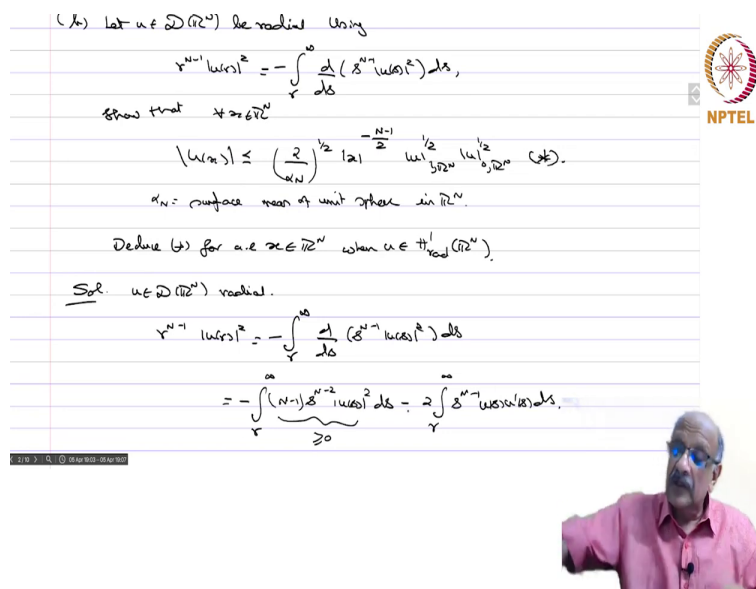 (b) Let u ∈ D(ℝ^N) be radial Using
r^{N-1} |u(r)|² = - ∫_r^∞ d/ds (s^{N-1} |u(s)|²) ds,
show that ∀ x ∈ ℝ^N
|u(x)| ≤ (2/α_N)^{1/2} |x|^{-(N-1)/2} |u|_{1,ℝ^N}^{1/2} |u|_{0,ℝ^N}^{1/2} (*).
α_N = surface meas of unit sphere in ℝ^N.
Deduce (*) for a.e x ∈ ℝ^N when u ∈ H¹_rad(ℝ^N).
Sol. u ∈ D(ℝ^N) radial.
r^{N-1} |u(r)|² = - ∫_r^∞ d/ds (s^{N-1} |u(s)|²) ds
= - ∫_r^∞ (N-1) s^{N-2} |u(s)|² ds - 2 ∫_r^∞ s^{N-1} u(s) u'(s) ds.
≥0
NPTEL
2 / 10 05 Apr 19:03 - 05 Apr 19:07